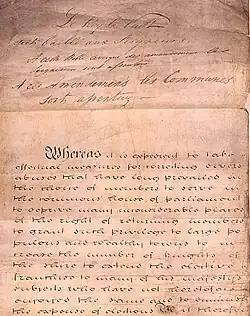 Le Roy le Veult
Soit baillé aux Seigneurs
A ceste Bille avesque des amendemens les
Seigneurs sont assentus
A ces Amendemens les Communes
sont assentuz
Whereas it is expedient to take
effectual measures for correcting divers
abuses that have long prevailed in
the choice of members to serve in
the commons house of parliament
to deprive many inconsiderable places
of the right of returning members
to grant such privilege to large po
pulous and wealthy towns to in
crease the number of knights of
the shire to extend the elective
franchise to many of his majesty's
subjects who have not heretofore
enjoyed the same and to diminish
the expense of elections be it therefore